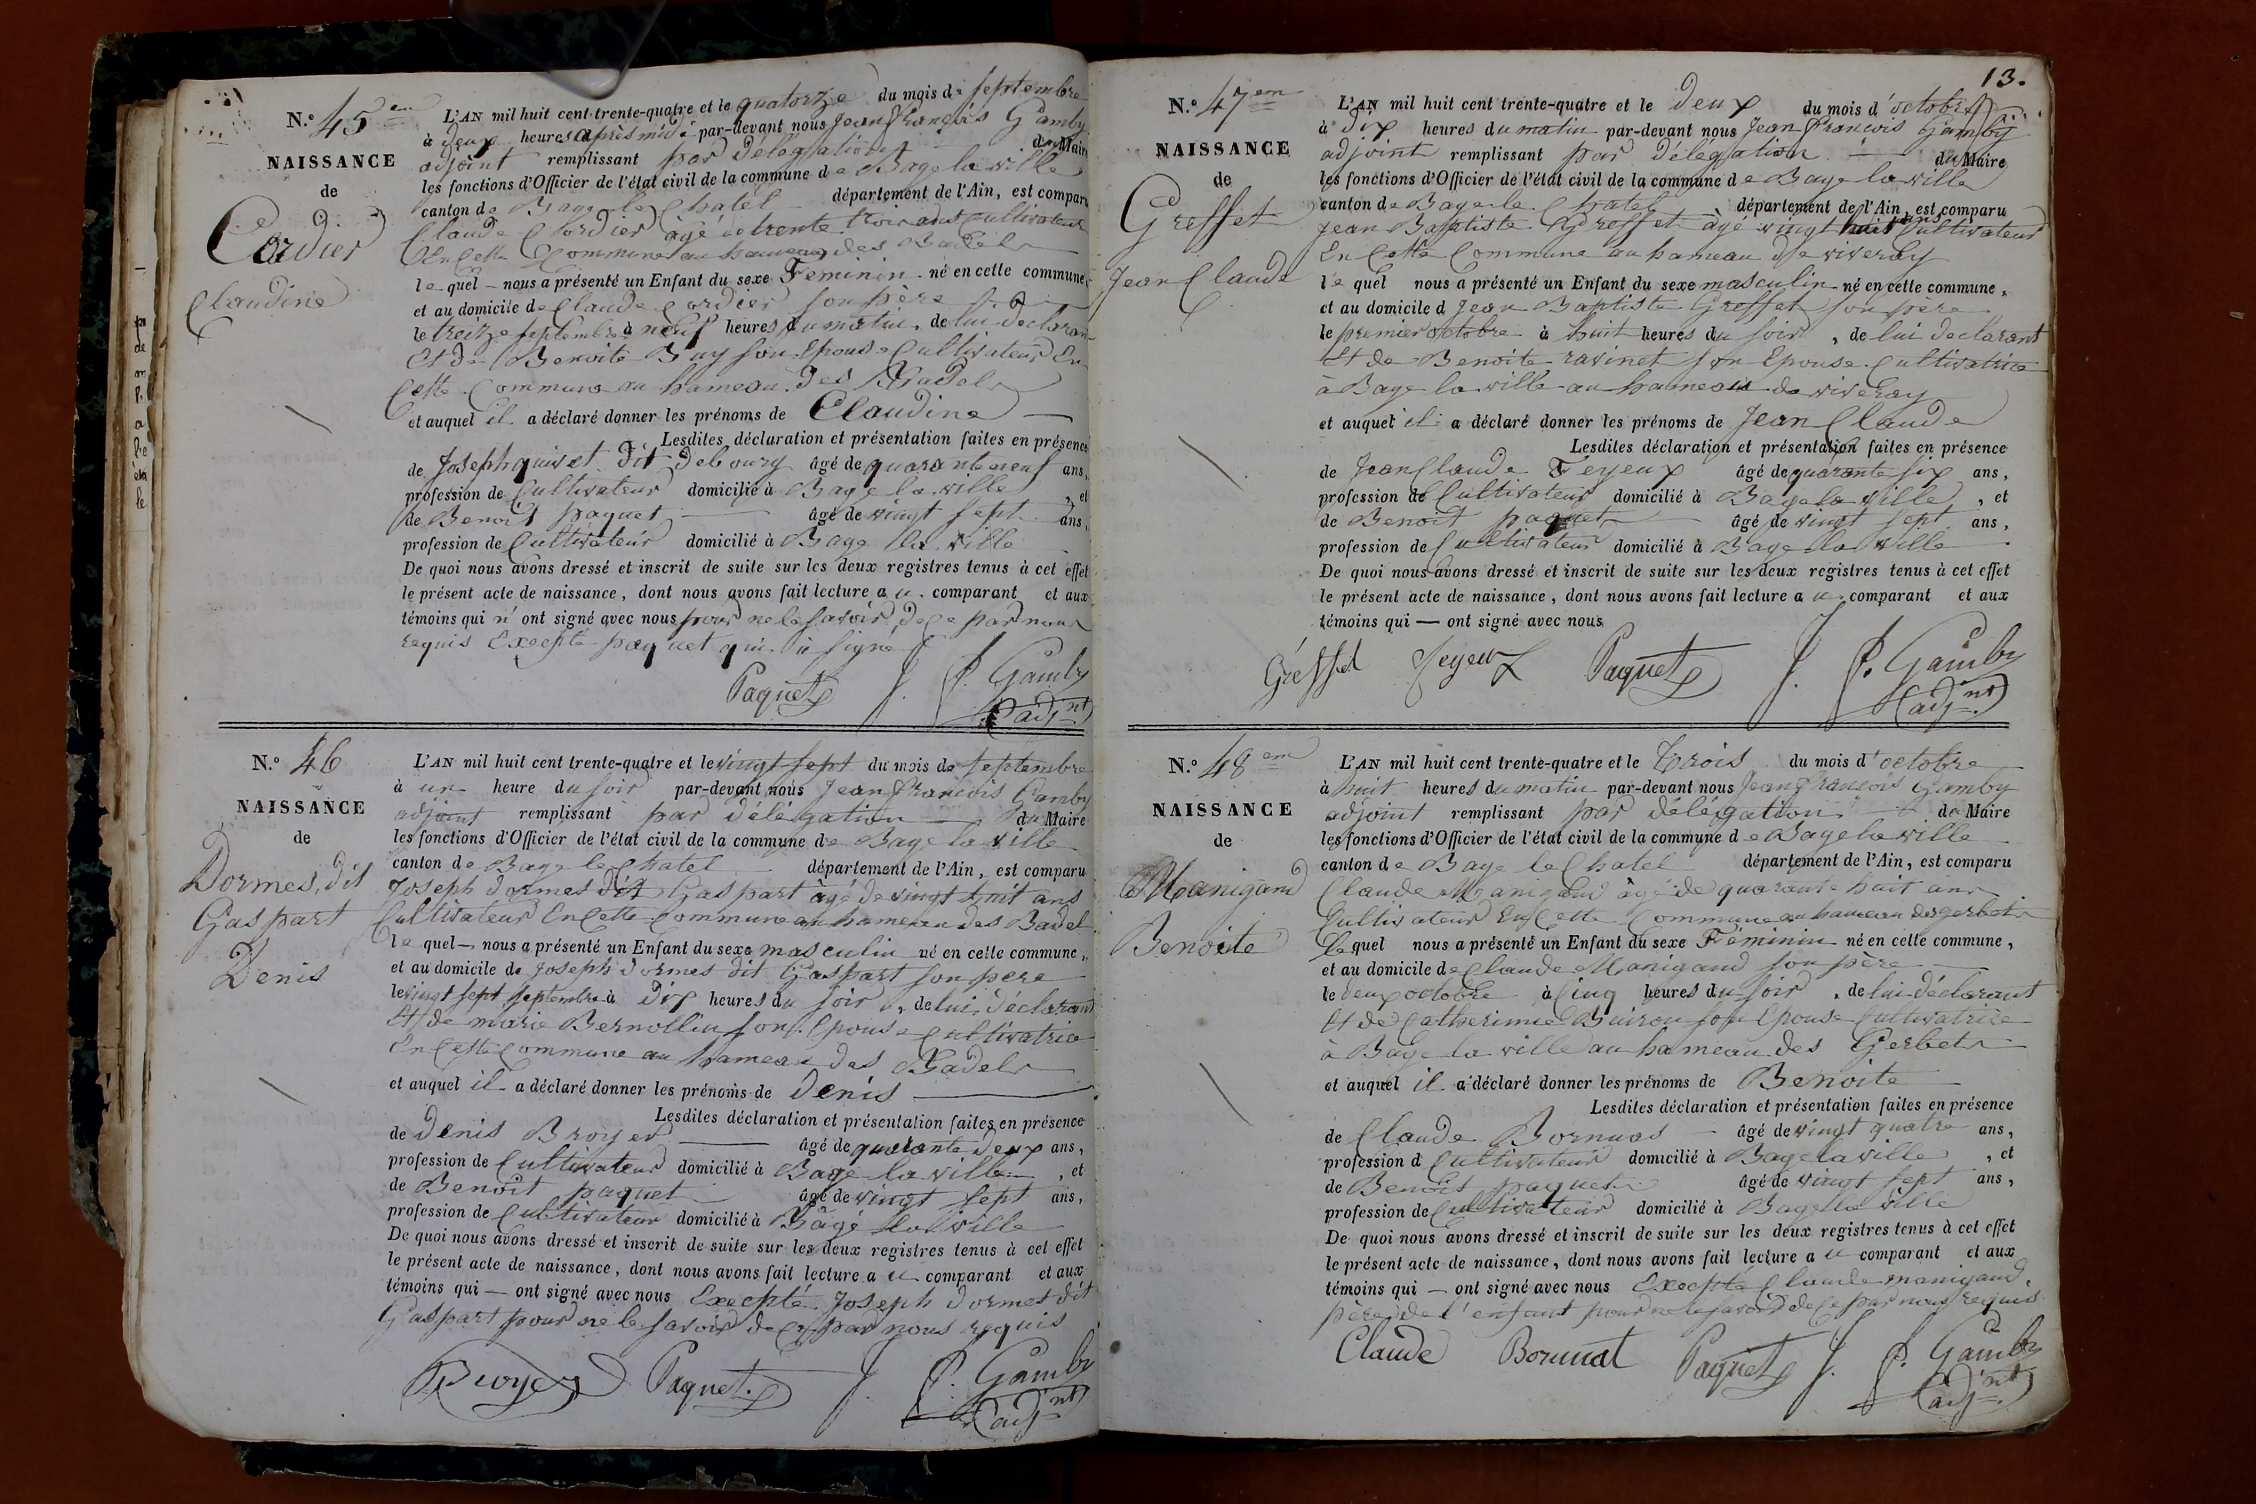 N.° 45em
NAISSANCE
de
Cordier
Claudine
L'AN mil huit cent trente-quatre et le quatorze du mois de septembre
à deux heures après midi par-devant nous Jean François Gamby
adjoint remplissant par délégation du Maire
les fonctions d'Officier de l'état civil de la commune de Bage la ville
canton de Bage le Chatel département de l'Ain, est comparu
Claude Cordier âgé de trente trois ans Cultivateur
En Cette Commune au hameau des Badel
le quel – nous a présenté un Enfant du sexe Feminin né en cette commune,
et au domicile de Claude Cordier son père
le treize septembre à neuf heures du matin, de lui déclarant
Et de Benoite Buy son Epouse Cultivateur En
Cette Commune au hameau des Badel
et auquel il a déclaré donner les prénoms de Claudine
Lesdites déclaration et présentation faites en présence
de Joseph quivet dit debourg âgé de quarante neuf ans,
profession de Cultivateur domicilié à Bage la ville, et
de Benoit paquet âgé de vingt sept ans,
profession de Cultivateur domicilié à Bage la ville
De quoi nous avons dressé et inscrit de suite sur les deux registres tenus à cet effet
le présent acte de naissance, dont nous avons fait lecture au comparant et aux
témoins qui n'ont signé avec nous pour ne le savoir de ce par nous
requis Excepté paquet qui a signé
Paquet J. F. Gamby
adjnt
N.° 46
NAISSANCE
de
Dormes, dit
Gaspart
Denis
L'AN mil huit cent trente-quatre et le vingt sept du mois de septembre
à un heure du soir par-devant nous Jean François Gamby
adjoint remplissant par délégation du Maire
les fonctions d'Officier de l'état civil de la commune de Bage la ville
canton de Bage le Chatel département de l'Ain, est comparu
Joseph dormes dit Gaspart âgé de vingt huit ans
Cultivateur En Cette Commune au hameau des Badel
le quel – nous a présenté un Enfant du sexe masculin né en cette commune,
et au domicile de Joseph dormes dit Gaspart son père
le vingt sept septembre à dix heures du soir, de lui déclarant
Et de marie Bernollin son Epouse Cultivatrice
En Cette Commune au hameau des Badel
et auquel il a déclaré donner les prénoms de Denis
Lesdites déclaration et présentation faites en présence
de denis Broyer âgé de quarante deux ans,
profession de Cultivateur domicilié à Bagé la ville, et
de Benoit paquet âgé de vingt sept ans,
profession de Cultivateur domicilié à Bâgé la ville
De quoi nous avons dressé et inscrit de suite sur les deux registres tenus à cet effet
le présent acte de naissance, dont nous avons fait lecture au comparant et aux
témoins qui – ont signé avec nous Excepté Joseph dormes dit
Gaspart pour ne le savoir de ce par nous requis
Broyer Paquet J. F. Gamby
adjnt
13.
N.° 47em
NAISSANCE
de
Greffet
Jean Claude
L'AN mil huit cent trente-quatre et le deux du mois d'octobre
à dix heures du matin par-devant nous Jean François Gamby
adjoint remplissant par délégation du Maire
les fonctions d'Officier de l'état civil de la commune de Bage la ville
canton de Bage le Chatel, département de l'Ain, est comparu
Jean Baptiste Greffet âgé vingt huit ans Cultivateur
En Cette Commune au hameau de viveray
le quel nous a présenté un Enfant du sexe masculin né en cette commune,
et au domicile d Jean Baptiste Greffet son père
le premier octobre à huit heures du soir, de lui déclarant
Et de Benoite ravinet son Epouse Cultivatrice
à Bage la ville au hameau de viveray
et auquel il a déclaré donner les prénoms de Jean Claude
Lesdites déclaration et présentation faites en présence
de Jean Claude Feyeux âgé de quarante six ans,
profession de Cultivateur domicilié à Bage la ville, et
de Benoit paquet âgé de vingt sept ans,
profession de Cultivateur domicilié à Bage la ville
De quoi nous avons dressé et inscrit de suite sur les deux registres tenus à cet effet
le présent acte de naissance, dont nous avons fait lecture au comparant et aux
témoins qui – ont signé avec nous
Greffet feyeux Paquet J. F. Gamby
adjnt
N.° 48em
NAISSANCE
de
Manigand
Benoite
L'AN mil huit cent trente-quatre et le trois du mois d'octobre
à huit heures du matin par-devant nous Jean François Gamby
adjoint remplissant par délégation du Maire
les fonctions d'Officier de l'état civil de la commune de Bage la ville
canton de Bage le Chatel département de l'Ain, est comparu
Claude Manigand âgé de quarante huit ans
Cultivateur En Cette Commune au hameau des gerbet
le quel nous a présenté un Enfant du sexe Féminin né en cette commune,
et au domicile de Claude Manigand son père
le deux octobre à Cinq heures du soir, de lui déclarant
Et de Catherinne Buiron son Epouse Cultivatrice
à Bage la ville au hameau des Gerbet
et auquel il a déclaré donner les prénoms de Benoite
Lesdites déclaration et présentation faites en présence
de Claude Bornuas âgé de vingt quatre ans,
profession d Cultivateur domicilié à Bage la ville, et
de Benoit paquet âgé de vingt sept ans,
profession de Cultivateur domicilié à Bage la ville
De quoi nous avons dressé et inscrit de suite sur les deux registres tenus à cet effet
le présent acte de naissance, dont nous avons fait lecture au comparant et aux
témoins qui – ont signé avec nous Excepté Claude manigand,
père de l'enfant pour ne le savoir de ce par nous requis
Claude Borunat Paquet J. F. Gamby
adjnt